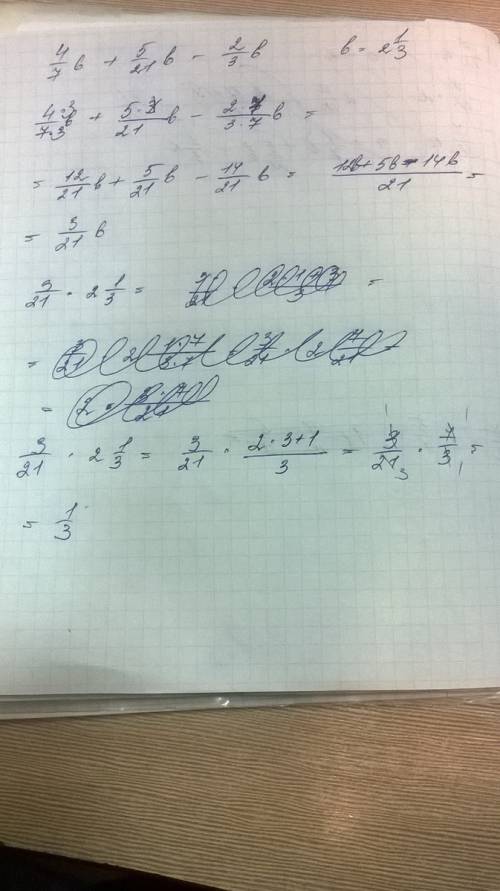 4/7 в + 5/21 в - 2/3 в     в = 2 1/3
4·3/7·3 в + 5/21 в - 2·7/3·7 в =
= 12/21 в + 5/21 в - 14/21 в = 12в+5в-14в/21 =
= 3/21 в
3/21 · 2 1/3 = =
=
=
3/21 · 2 1/3 = 3/21 · 2·3+1/3 = 3/21 · 7/3 =
= 1/3